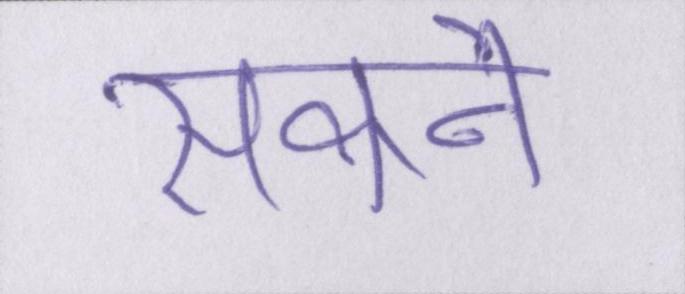 सकने